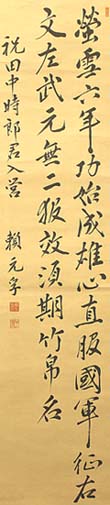 螢雪六年功始成雄心直服國軍征右
文左武元無二報效須期竹帛名
祝田中時郎君入営 賴元孚